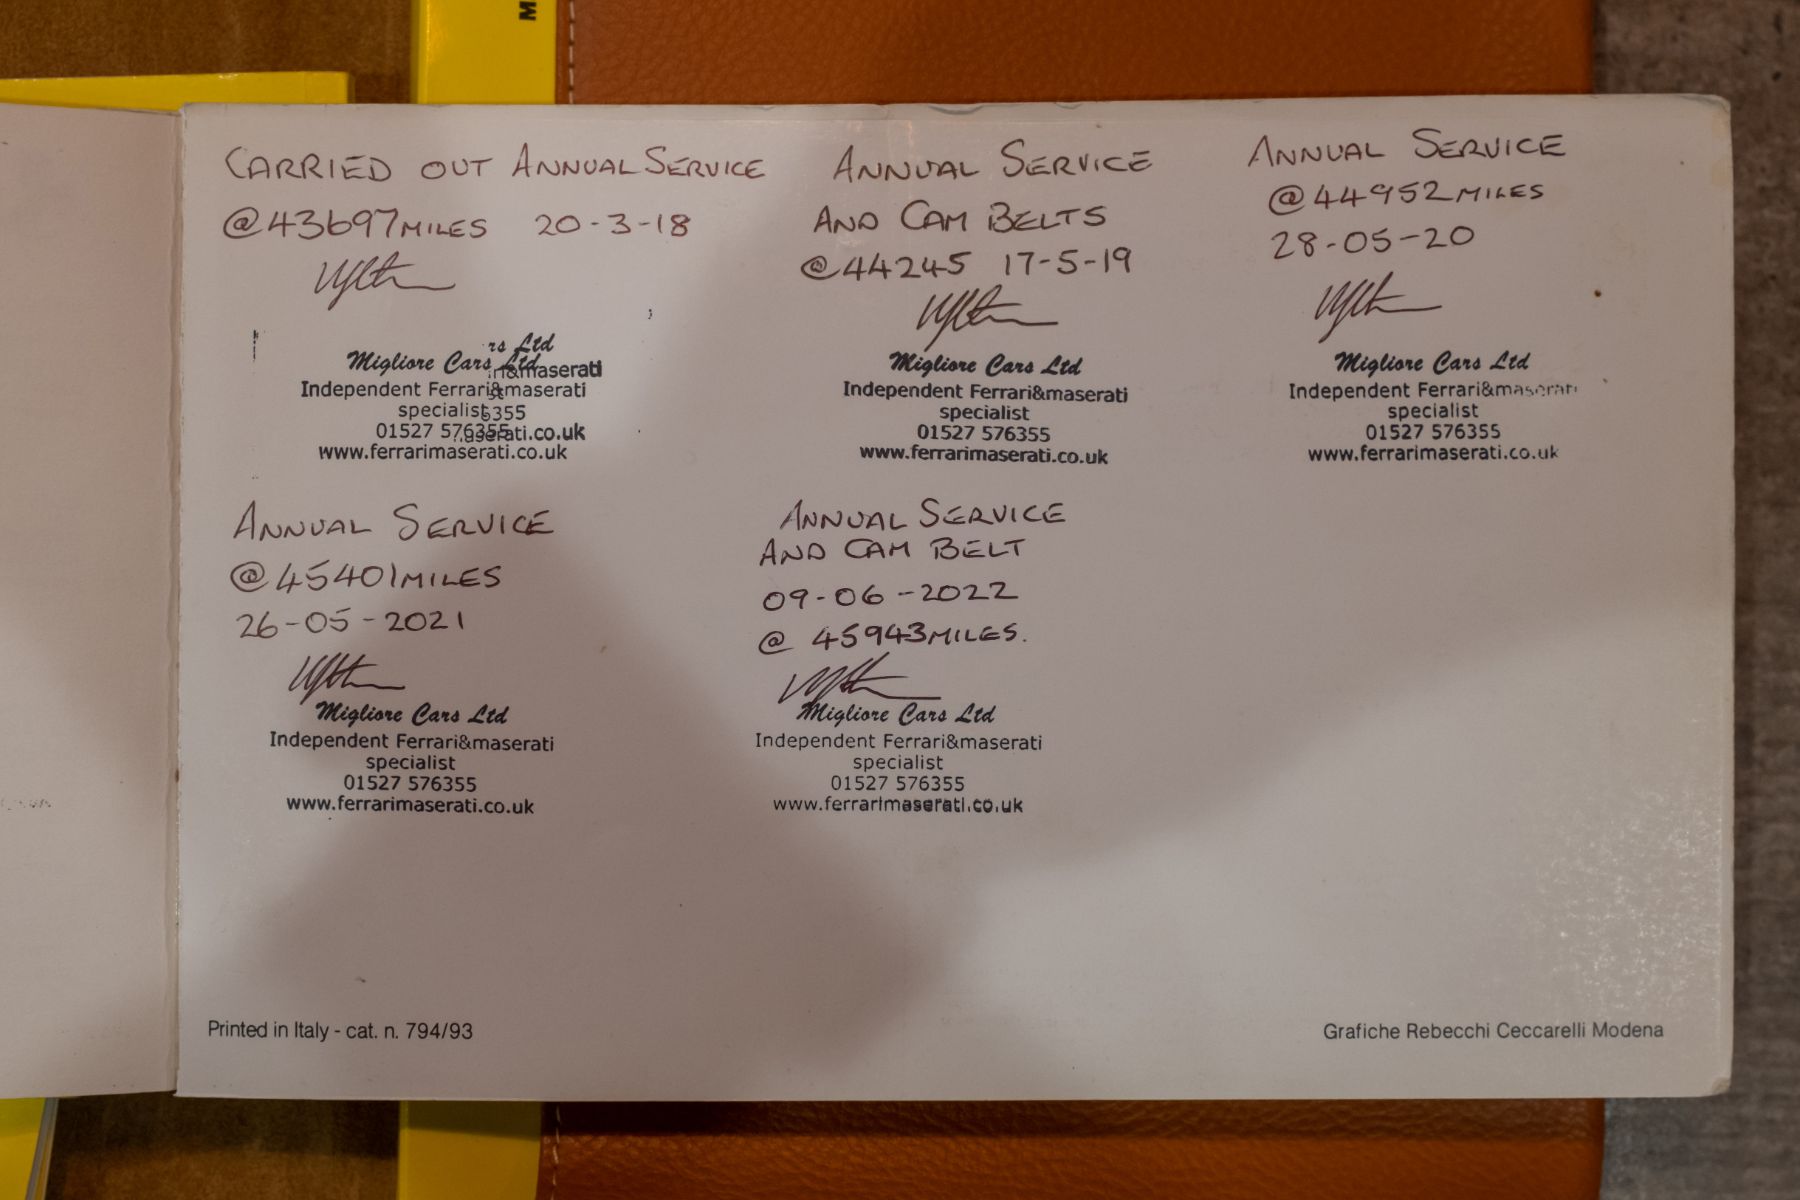 M
CARRIED OUT ANNUAL SERVICE
@43697 MILES 20-3-18
rs Ltd
Migliore Cars Ltd
ri&maserati
Independent Ferrari&maserati
specialist
6355
01527 576355
aserati.co.uk
www.ferrarimaserati.co.uk
ANNUAL SERVICE
AND CAM BELTS
@44245 17-5-19
Migliore Cars Ltd
Independent Ferrari&maserati
specialist
01527 576355
www.ferrarimaserati.co.uk
ANNUAL SERVICE
@44952 MILES
28-05-20
Migliore Cars Ltd
Independent Ferrari&maserati
specialist
01527 576355
www.ferrarimaserati.co.uk
ANNUAL SERVICE
@45401 MILES
26-05-2021
Migliore Cars Ltd
Independent Ferrari&maserati
specialist
01527 576355
www.ferrarimaserati.co.uk
ANNUAL SERVICE
AND CAM BELT
09-06-2022
@ 45943 MILES.
Migliore Cars Ltd
Independent Ferrari&maserati
specialist
01527 576355
www.ferrarimaserati.co.uk
Printed in Italy - cat. n. 794/93
Grafiche Rebecchi Ceccarelli Modena